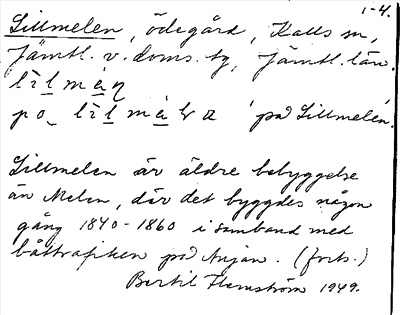 1-4.
Lillmelen, ödegård, Kalls sn,
Jämtl. v. doms. tg, Jämtl. län.
lìlmèn
po lìlmèla 'på Lillmelen'.
Lillmelen är äldre bebyggelse
än Melen, där det byggdes någon
gång 1840-1860 i samband med
båttrafiken på Anjan. (forts.)
Bertil Flemström 1949.